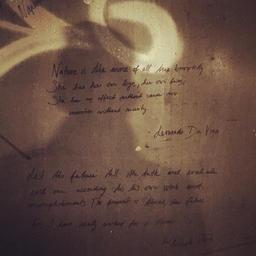 Nature is the source of all true knowledge
She has her own logic, her own laws,
She has no effect without cause nor
invention without necessity.
- Leonardo Da Vinci
Let the future tell the truth and evaluate
each one according to his own work and
accomplishments. The present is theirs, the future
for I have really worked for is mine